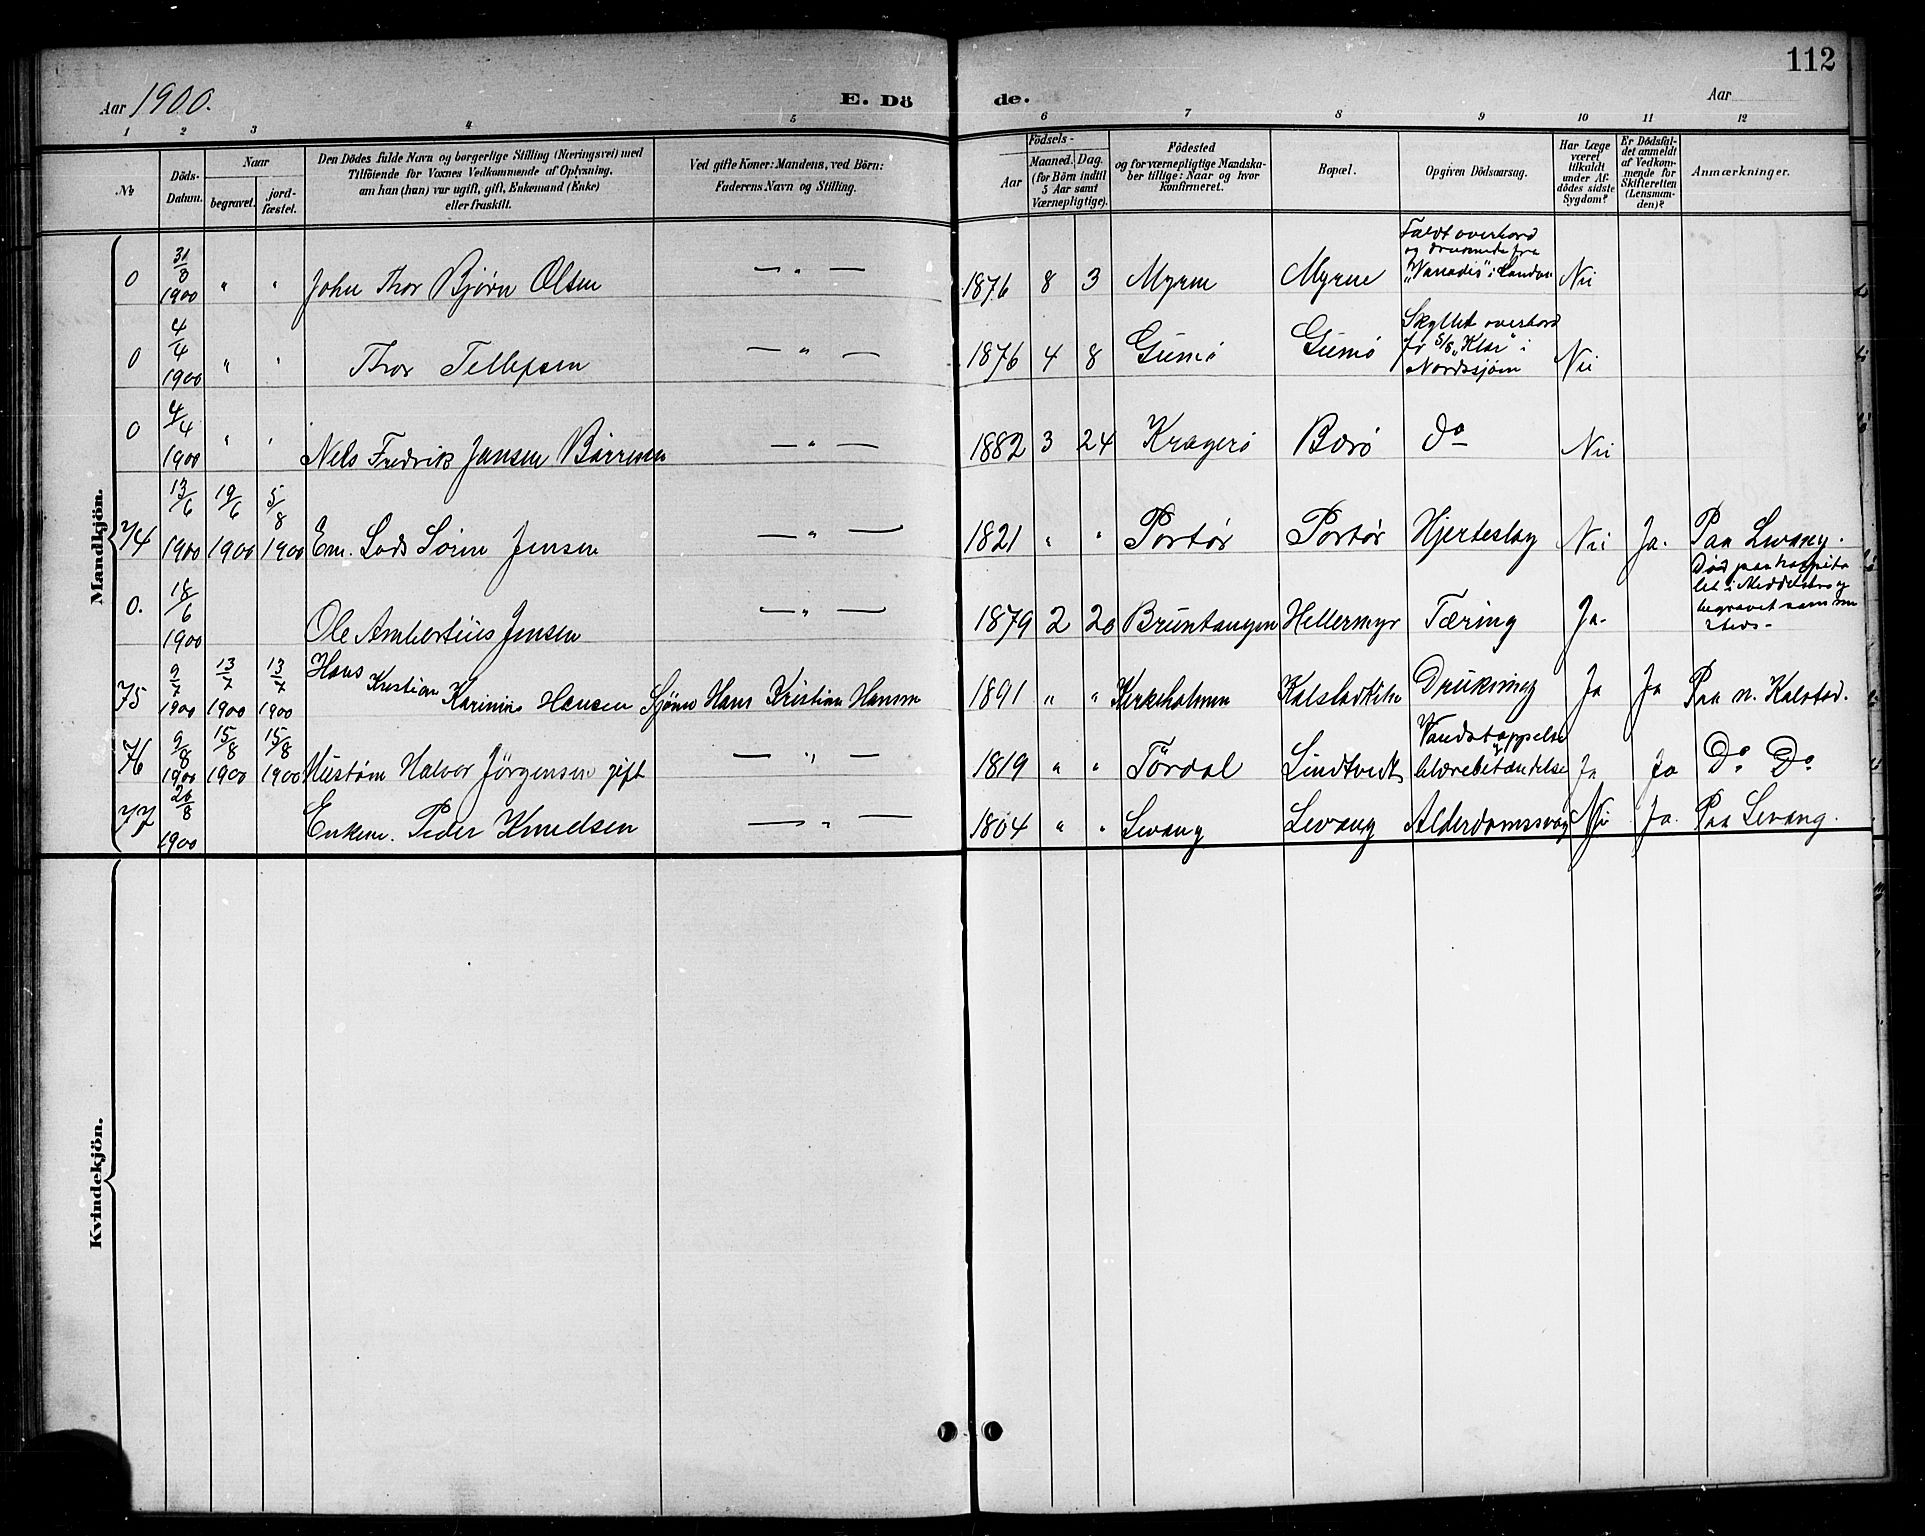 112
Aar 1900.
E. Dö
de.
Aar
1 2 3 4 5
6 7 8 9 10 11 12
№
Döds-
Datum.
Naar
begravet.
jord-
fæstet.
Den Dödes fulde Navn og borgerlige Stilling (Næringsvei) med
Tilföiende for Voxnes Vedkommende af Oplysning,
om han (hun) var ugift, gift, Enkemand (Enke)
eller fraskilt.
Ved gifte Koner: Mandens, ved Börn:
Faderens Navn og Stilling.
Födsels-
Aar
Maaned. Dag.
(for Börn indtil
5 Aar samt
Værnepligtige).
Födested
og for værnepligtige Mandska-
ber tillige: Naar og hvor
konfirmeret.
Bopæl.
Opgiven Dödsaarsag.
Har Læge
været
tilkaldt
under Af-
dödes sidste
Sygdom?
Er Dödsfal-
det anmeldt
af Vedkom-
mende for
Skifteretten
(Lensman-
den)?
Anmærkninger.
Mandkjön.
0 31/3 1900 " " John Thor Bjørn Olsen — " — 1876 8 3 Myrne Myrne Faldt overbord
og druknede fra
"Vanadis" i London Nei
0 4/4 1900 " " Thor Tellefsen — " — 1876 4 8 Gumö Gumö Skyllet overbord
fr S/S "Klar" i
Nordsjøen Nei
0 4/4 1900 " " Nels Fredrik Jansen Börresen — " — 1882 3 24 Kragerö Berö Do Nei
74 13/6 1900 19/6 1900 5/8 1900 Em. Lods Sören Jensen — " — 1821 " " Portör Portör Hjerteslag Nei Ja. Paa Levang.
0. 18/6 1900 Ole Ambertius Jensen — " — 1879 2 20 Bruntangen Hellermyr Tæring Ja. Död paa hospita
let i
begravet samme
steds.
75 9/7 1900 13/7 1900 13/7 1900 Hans
Kristian Karinius Hansen Sjöm. Hans Kristian Hansen 1891 " " Kirkeholmen Kalstadkilen Drukning Ja Ja Paa n. Kalstad.
76 9/8 1900 15/8 1900 15/8 1900 Husm. Halvor Jörgensen gift — " — 1819 " " Tördal Lindtvedt Vandstoppelse
blærebetændelse Ja Ja Do Do
77 26/8 1900 Enkem. Peder Knudsen — " — 1804 " " Levang Levang Alderdomssvag Nei Ja. Paa Levang.
Kvindekjön.